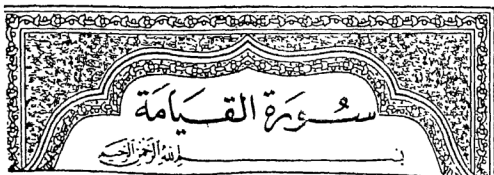 سُورَةُ القِيَامَةِ
بِسْمِ اللَّهِ الرَّحْمَٰنِ الرَّحِيمِ